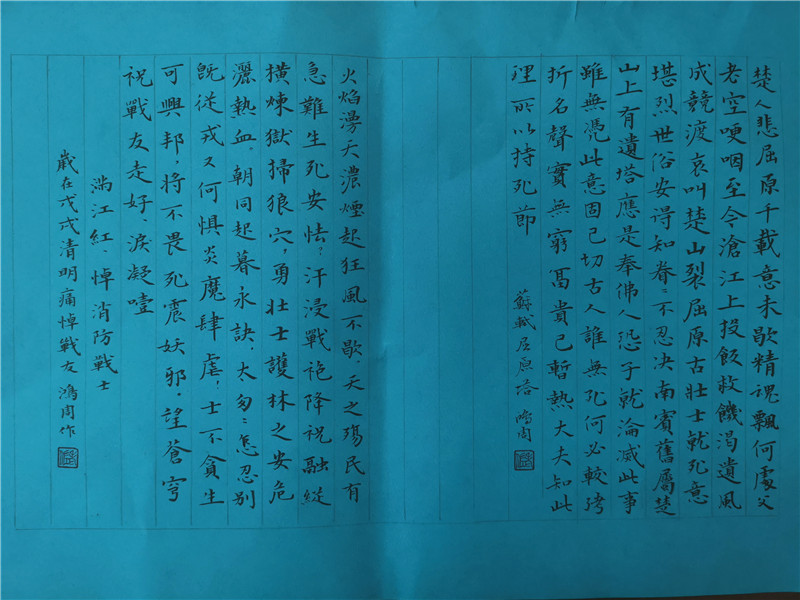 楚人悲屈原千載意未歇精魂飄何處父
老空哽咽至今滄江上投飯救饑渴遺風
成競渡哀叫楚山裂屈原古壯士就死意
堪烈世俗安得知眷〻不忍决南賓舊屬楚
山上有遺塔應是奉佛人恐子就淪滅此事
雖無憑此意固已切古人誰無死何必較考
折名聲實無窮冨貴已暫熱大夫知此
理所以持死節
蘇軾屈原塔 鴻周
火焰漫天濃煙起狂風不歇、天之殤民有
急難生死安怯？汗浸戰袍降祝融縱
橫煉獄掃狼穴，勇壯士護林之安危
灑熱血朝同起暮永訣、太匆〻怎忍别
既從戎又何懼炎魔肆虐，士不貪生
可興邦，將不畏死震妖邪、望蒼穹
祝戰友走好、淚凝噎
滿江紅、悼消防戰士
歲在戊戌清明痛悼戰友 鴻周作